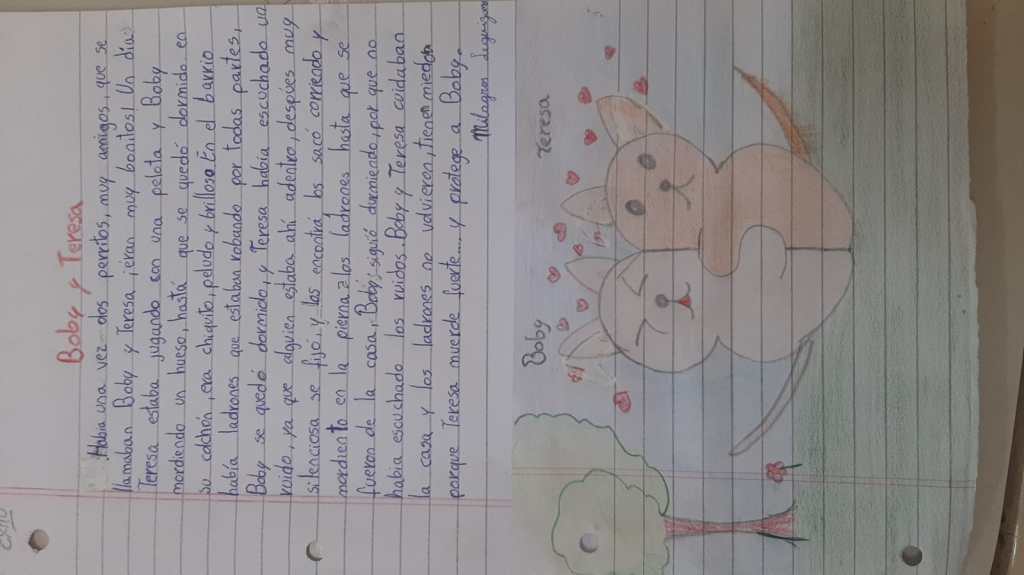 Boby y Teresa
Habia una vez dos perritos, muy amigos, que se
llamaban Boby y Teresa, ¡eran muy bonitos! Un día
Teresa estaba jugando con una pelota y Boby
mordiendo un hueso, hastá que se quedó dormido en
su colchón, era chiquito, peludo y brilloso. En el barrio
había ladrones que estaban robando por todas partes,
Boby se quedó dormido, y Teresa había escuchado un
ruido, ya que alguien estaba ahí adentro, después muy
silenciosa se fijó y los encontrá los sacó corriendo y
mordiento en la pierna a los ladrones hasta que se
fueron de la casa, Boby, siguió durmiendo, por que no
habia escuchado los ruidos. Boby y Teresa cuidaban
la casa y los ladrones no volvieron, tienen miedo
porque Teresa muerde fuerte.... y protege a Boby.
Milagros
Boby Teresa